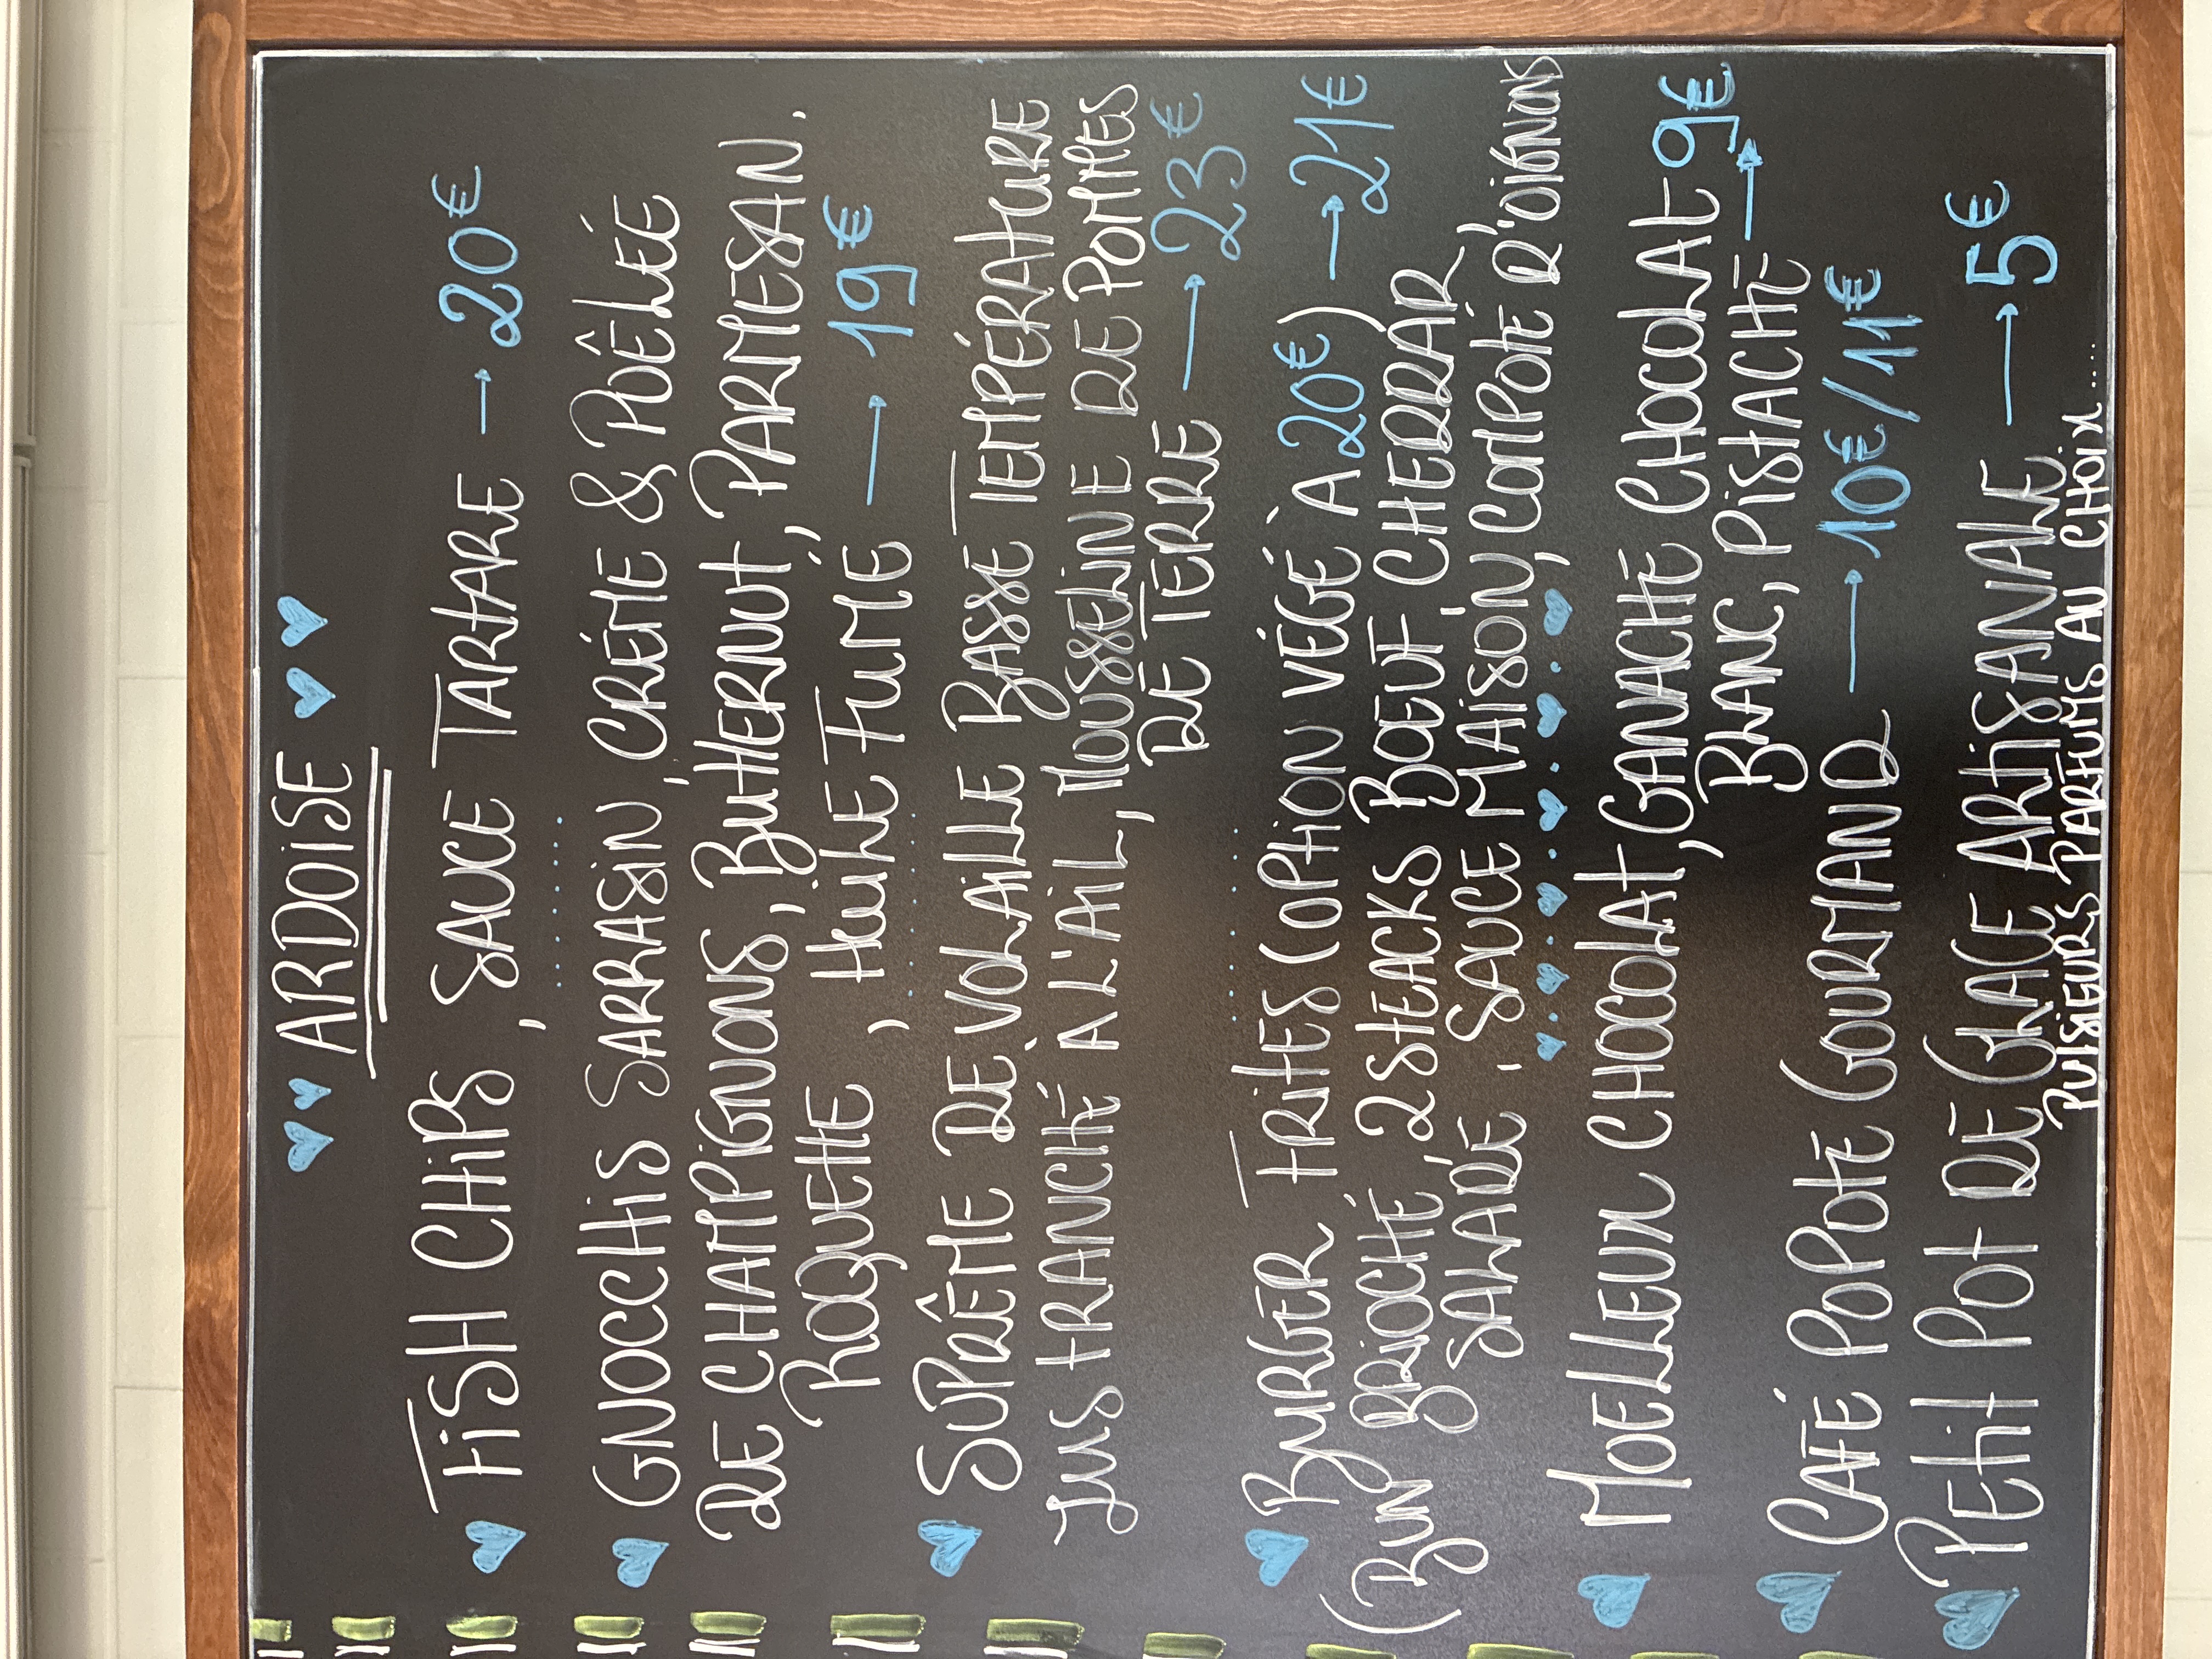 ARDOISE
FISH CHIPS, SAUCE TARTARE → 20€
GNOCCHIS SARRASIN, CRÉME & POÊLÉE
DE CHAMPIGNONS, BUTTERNUT, PARMESAN.
ROQUETTE, HUILE FUMÉ → 19€
SUPRÊME DE VOLAILLE BASSE TEMPÉRATURE
JUS TRANCHÉ A L'AIL, MOUSSELINE DE POMMES
DE TERRE → 23€
BURGER FRITES (OPTION VÉGÉ À 20€) → 21€
(BUN BRIOCHÉ, 2 STEACKS BOEUF CHEDDAR,
SALADE, SAUCE MAISON, COMPOTÉ D'OIGNONS
MOELLEUX CHOCOLAT, GANACHE CHOCOLAT
BLANC, PISTACHE → 9€
CAFÉ POPOTE GOURMAND → 10€/11€
PETIT POT DE GLACE ARTISANALE → 5€
PULSIEURS PARFUMS AU CHOIX.....